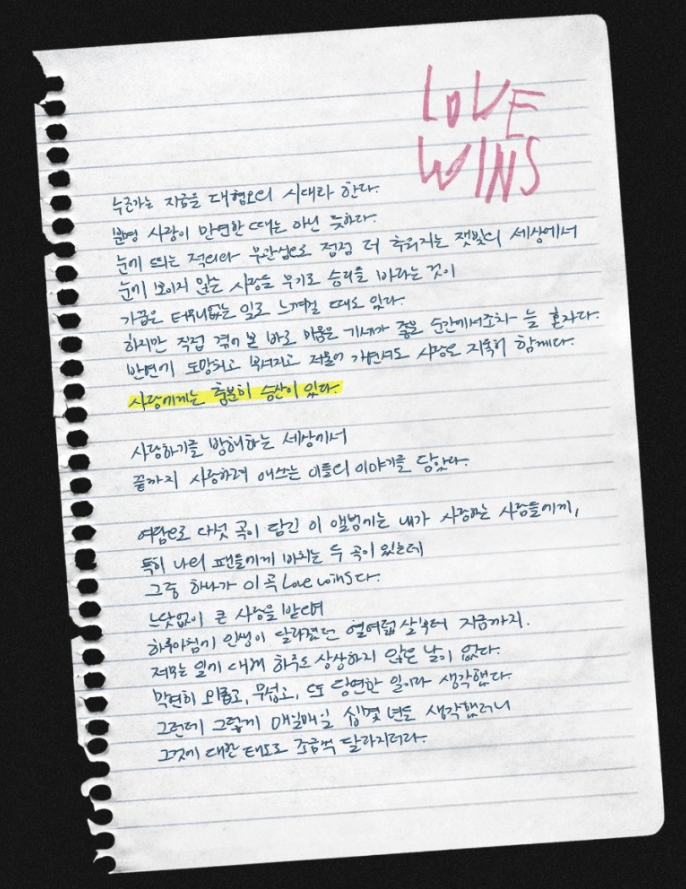 LOVE
WINS
누군가는 지금을 대혐오의 시대라 한다.
분명 사랑이 만연한 때는 아닌 듯하다.
눈에 띄는 적의와 무관심으로 점점 더 추워지는 잿빛의 세상에서
눈에 보이지 않는 사랑을 무기로 승리를 바라는 것이
가끔은 터무니없는 일로 느껴질 때도 있다.
하지만 직접 겪어 본 바로 미움은 기세가 좋은 순간에서조차 늘 혼자다.
반면에 도망치고 부서지고 저물어 가면서도 사랑은 지독히 함께다.
사랑에게는 충분히 승산이 있다.
사랑하기를 방해하는 세상에서
끝까지 사랑하려 애쓰는 이들의 이야기를 담았다.
여담으로 다섯 곡이 담긴 이 앨범에는 내가 사랑하는 사람들에게,
특히 나의 팬들에게 바치는 두 곡이 있는데
그중 하나가 이 곡 Love wins다.
느닷없이 큰 사랑을 받으며
하루아침에 인생이 달라졌던 열여럽 살부터 지금까지.
저무는 일에 대해 하루도 상상하지 않은 날이 없다.
막연히 외롭고, 무섭고, 또 당연한 일이라 생각했다.
그런데 그렇게 매일매일 십몇 년을 생각했더니
그것에 대한 태도도 조금씩 달라지더라.